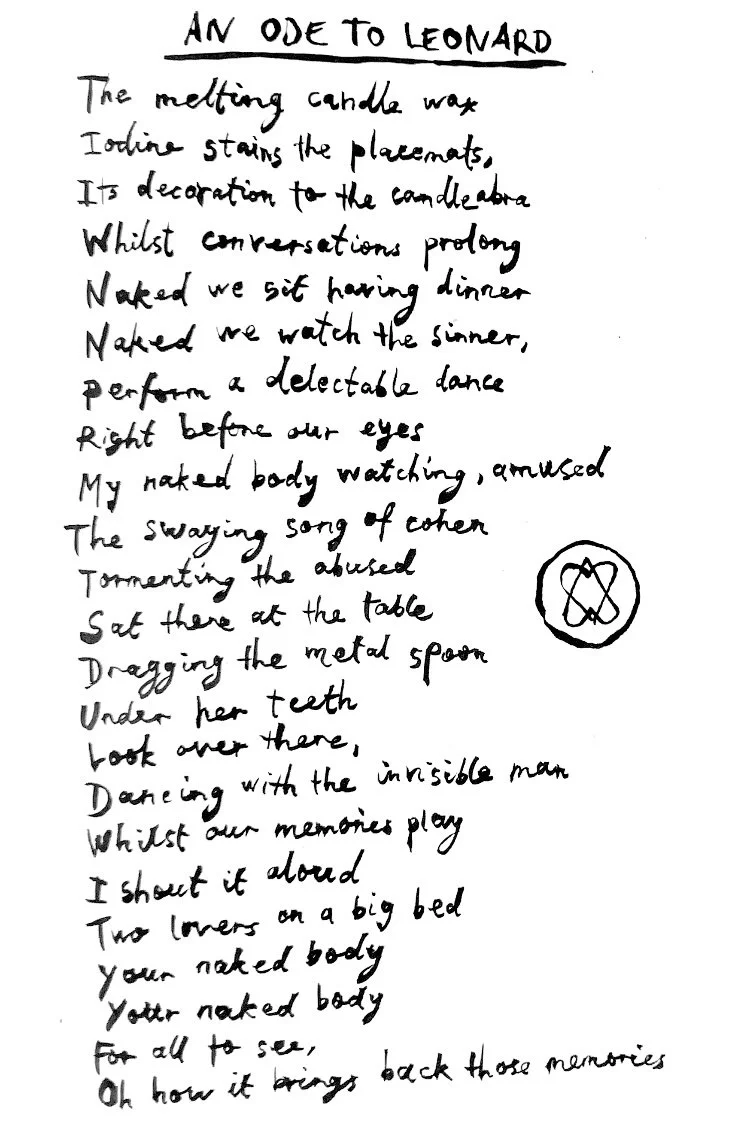 AN ODE TO LEONARD
The melting candle wax
Iodine stains the placemats,
Its decoration to the candleabra
Whilst conversations prolong
Naked we sit having dinner
Naked we watch the sinner,
Perform a delectable dance
Right before our eyes
My naked body watching, amused
The swaying song of cohen
Tormenting the abused
Sat there at the table
Dragging the metal spoon
Under her teeth
Look over there,
Dancing with the invisible man
Whilst our memories play
I shout it aloud
Two lovers on a big bed
Your naked body
Your naked body
For all to see,
Oh how it brings back those memories